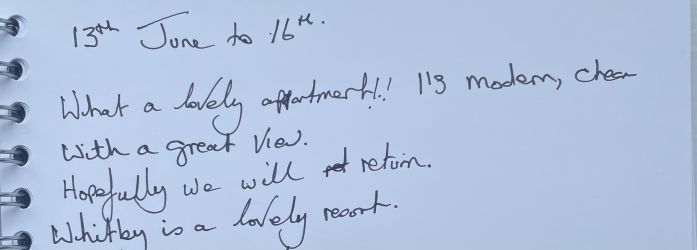 13th June to 16th.
What a lovely appartment!! It's modern, clean
With a great View.
Hopefully we will return.
Whitby is a lovely resort.